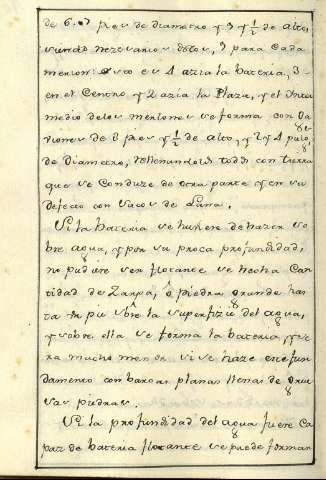 de 6. o 7 pies de diametro y 3 y 1/2 de alto,
siendo nezesarios destos, 3 para cada
merlon: esto es 4 azia la bateria, 3
en el Centro, y 2 azia la Plaza, y el inter
medio de los merlones se forma con Ga
viones de 8 pies y 1/2 de alto, y 2 y 4 pulg.
de Diametro, rellenandolos todos con tierra
que se conduze de otra parte y en su
defecto con sacos de Lana.
Si la bateria se hubiere de hazer so
bre agua, y por su poca profundidad,
no pudiere ser flotante se hecha Can
tidad de Zarpa, ô piedra grande has
ta sobre la superfizie del agua,
y sobre ella se forma la bateria, y se
ra mucho menor si se haze este fun
damento con barcas planas llenas de grue
sas piedras.
Si la profundidad del agua fuere Ca
paz de bateria flotante se puede formar